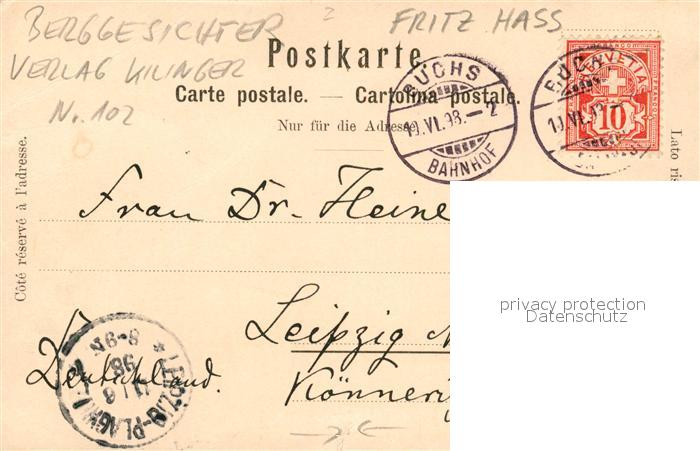 BERGGESICHTER
FRITZ HASS
VERLAG KILINGER
N. 102
Postkarte.
Carte postale. — Cartolina postale.
Nur für die Adresse.
BUCHS
10.VI.98.– 2
BAHNHOF
BUCHS
10.VI.98.–
HELVETIA
10
Côté réservé à l'adresse.
Lato ris
Frau Dr. Heine
Leipzig
Könneri
Deutschland.
LEIPZIG-PLAGWITZ
11 6
98
8-9 N
privacy protection
Datenschutz